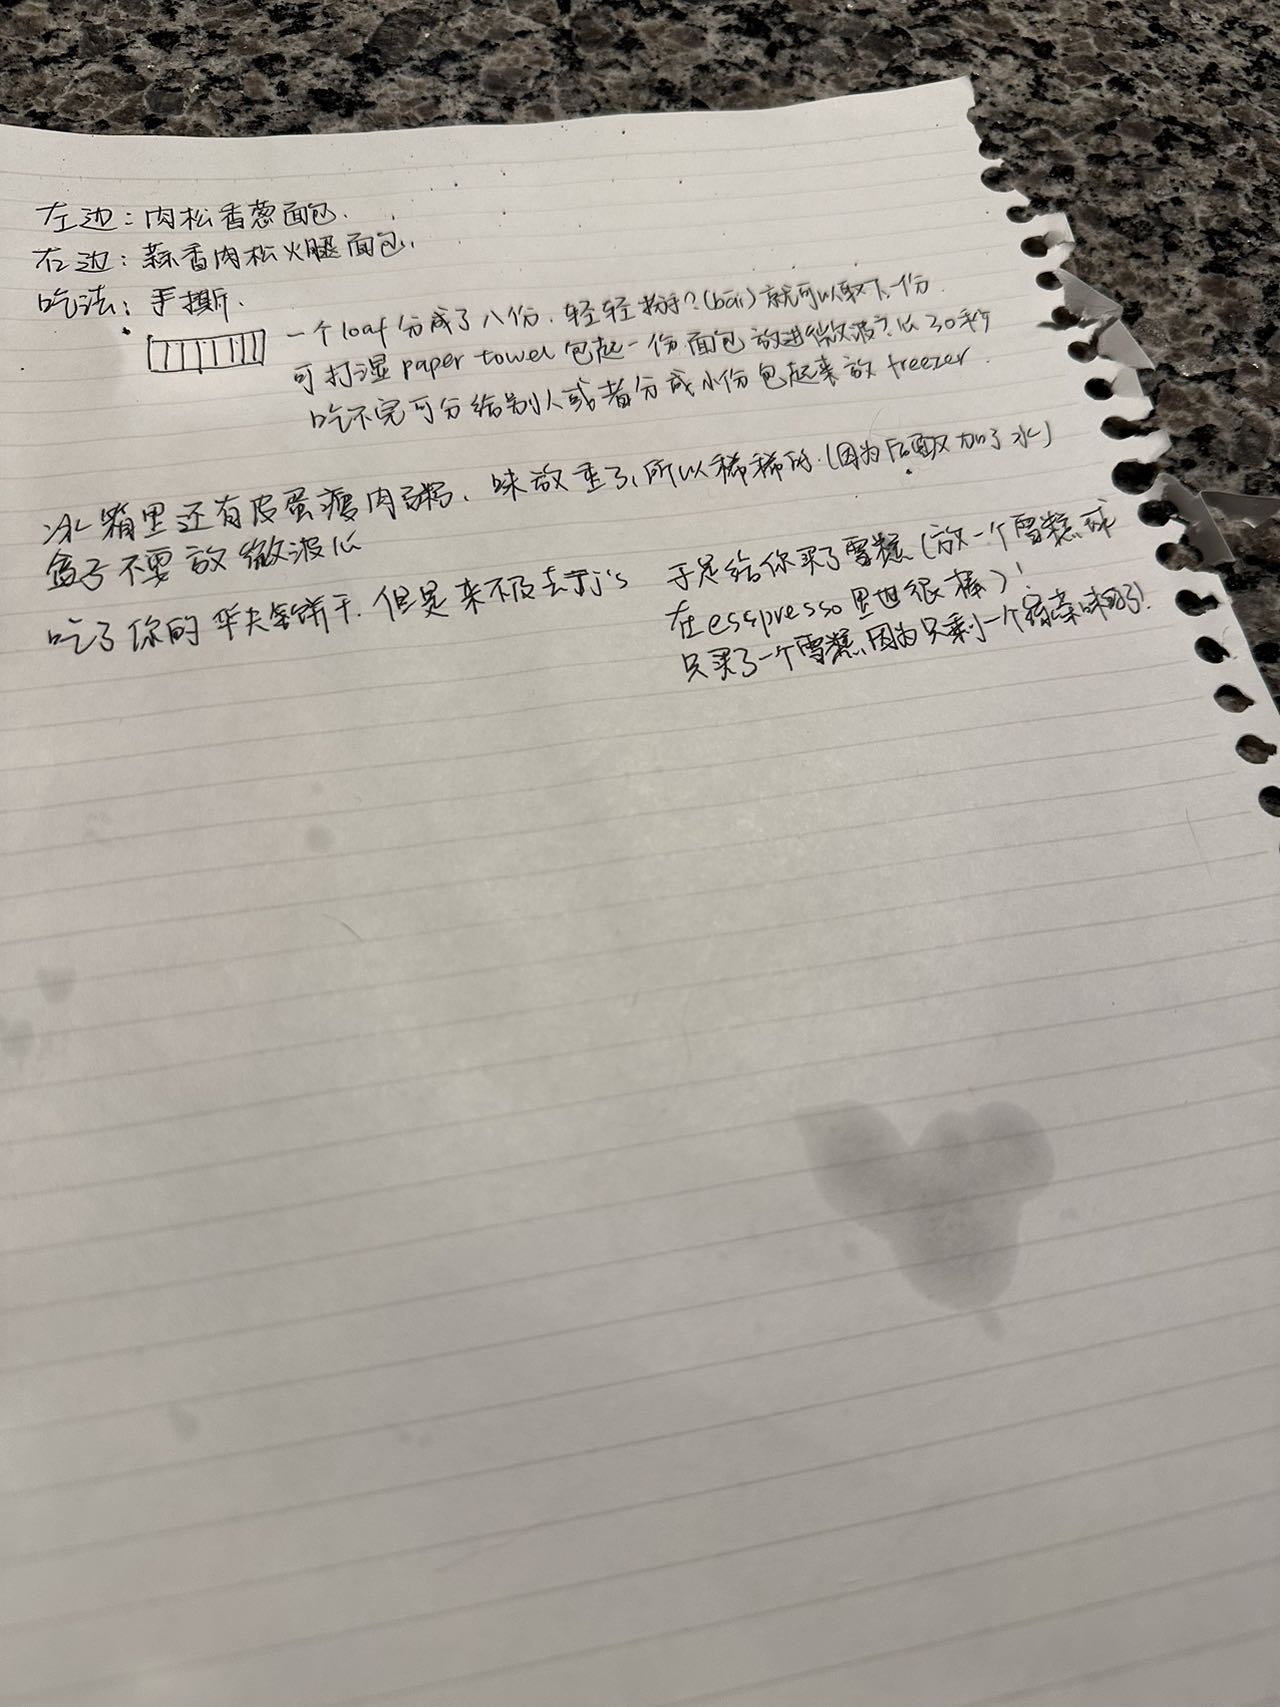 左边：肉松香葱面包.
右边：蒜香肉松火腿面包.
吃法：手撕.
一个loaf分成了八份. 轻轻 ? (bāi) 就可以取下一份.
可打湿 paper towel 包起一份面包放进微波?瓜30秒
吃不完可分给别人或者分成小份包起来放 freezer.
冰箱里还有皮蛋瘦肉粥. 味放重了, 所以稀稀的.(因为后面又加了水)
盒子不要放微波瓜
吃了你的华夫饼干. 但是来不及去TJ's
于是给你买了雪糕 (放一个雪糕球
在esspresso里也很棒)!
只买了一个雪糕, 因为只剩一个绿茶味的了!